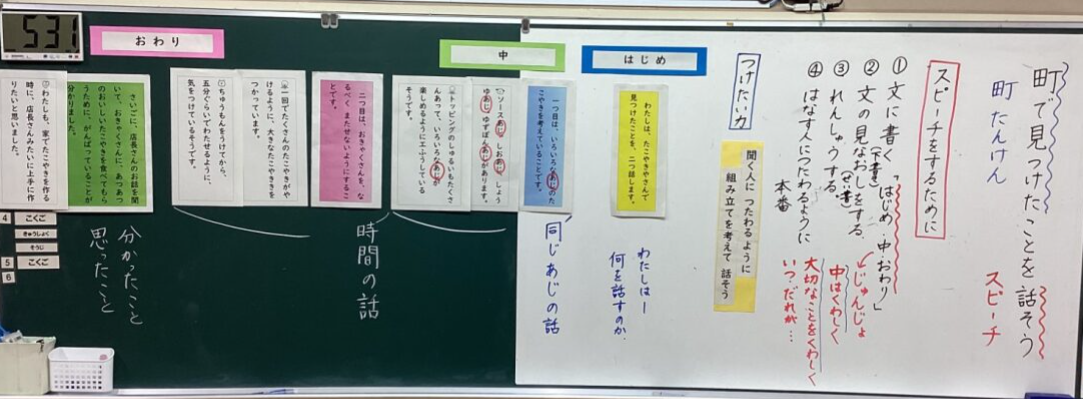 町で見つけたことを話そう
町たんけん
スピーチ
スピーチをするために
① 文に書く「はじめ・中・おわり」
(下書き)
② 文の見なおしをする。
じゅんじょ
(せい書)
③ れんしゅうする。
中はくわしく
④ はなす人につたわるように
本番
大切なことをくわしく
いつ、だれが…
つけたい力
聞く人に つたわるように
組み立てを考えて 話そう
はじめ
わたしは、たこやきやさんで
見つけたことを、二つ話します。
わたしはー
何を話すのか。
中
一つ目は、いろいろなあじのた
こやきを考えていることです。
㋐ソースあじ、しおあじ、しょう
ゆあじ、ゆずぽんあじがあります。
㋑トッピングのしゅるいもたくさ
んあって、いろいろなあじが
楽しめるようにくふうしている
そうです。
同じあじの話
二つ目は、おきゃくさんを、な
るべく またせないようにするこ
とです。
一回でたくさんのたこやきがや
けるように、大きなたこやききを
つかっています。
ちゅうもんをうけてから、
五分ぐらいでわたせるように、
気をつけているそうです。
時間の話
おわり
さいごに、店長さんのお話を聞
いて、おきゃくさんに、あつあつ
のおいしいたこやきを食べてもら
うために、がんばっていることが
分かりました。
わたしも、家でたこやきを作る
時に、店長さんみたいに上手に作
りたいと思いました。
分かったこと
思ったこと
531
4 こくご
きゅうしょく
そうじ
5 こくご
6